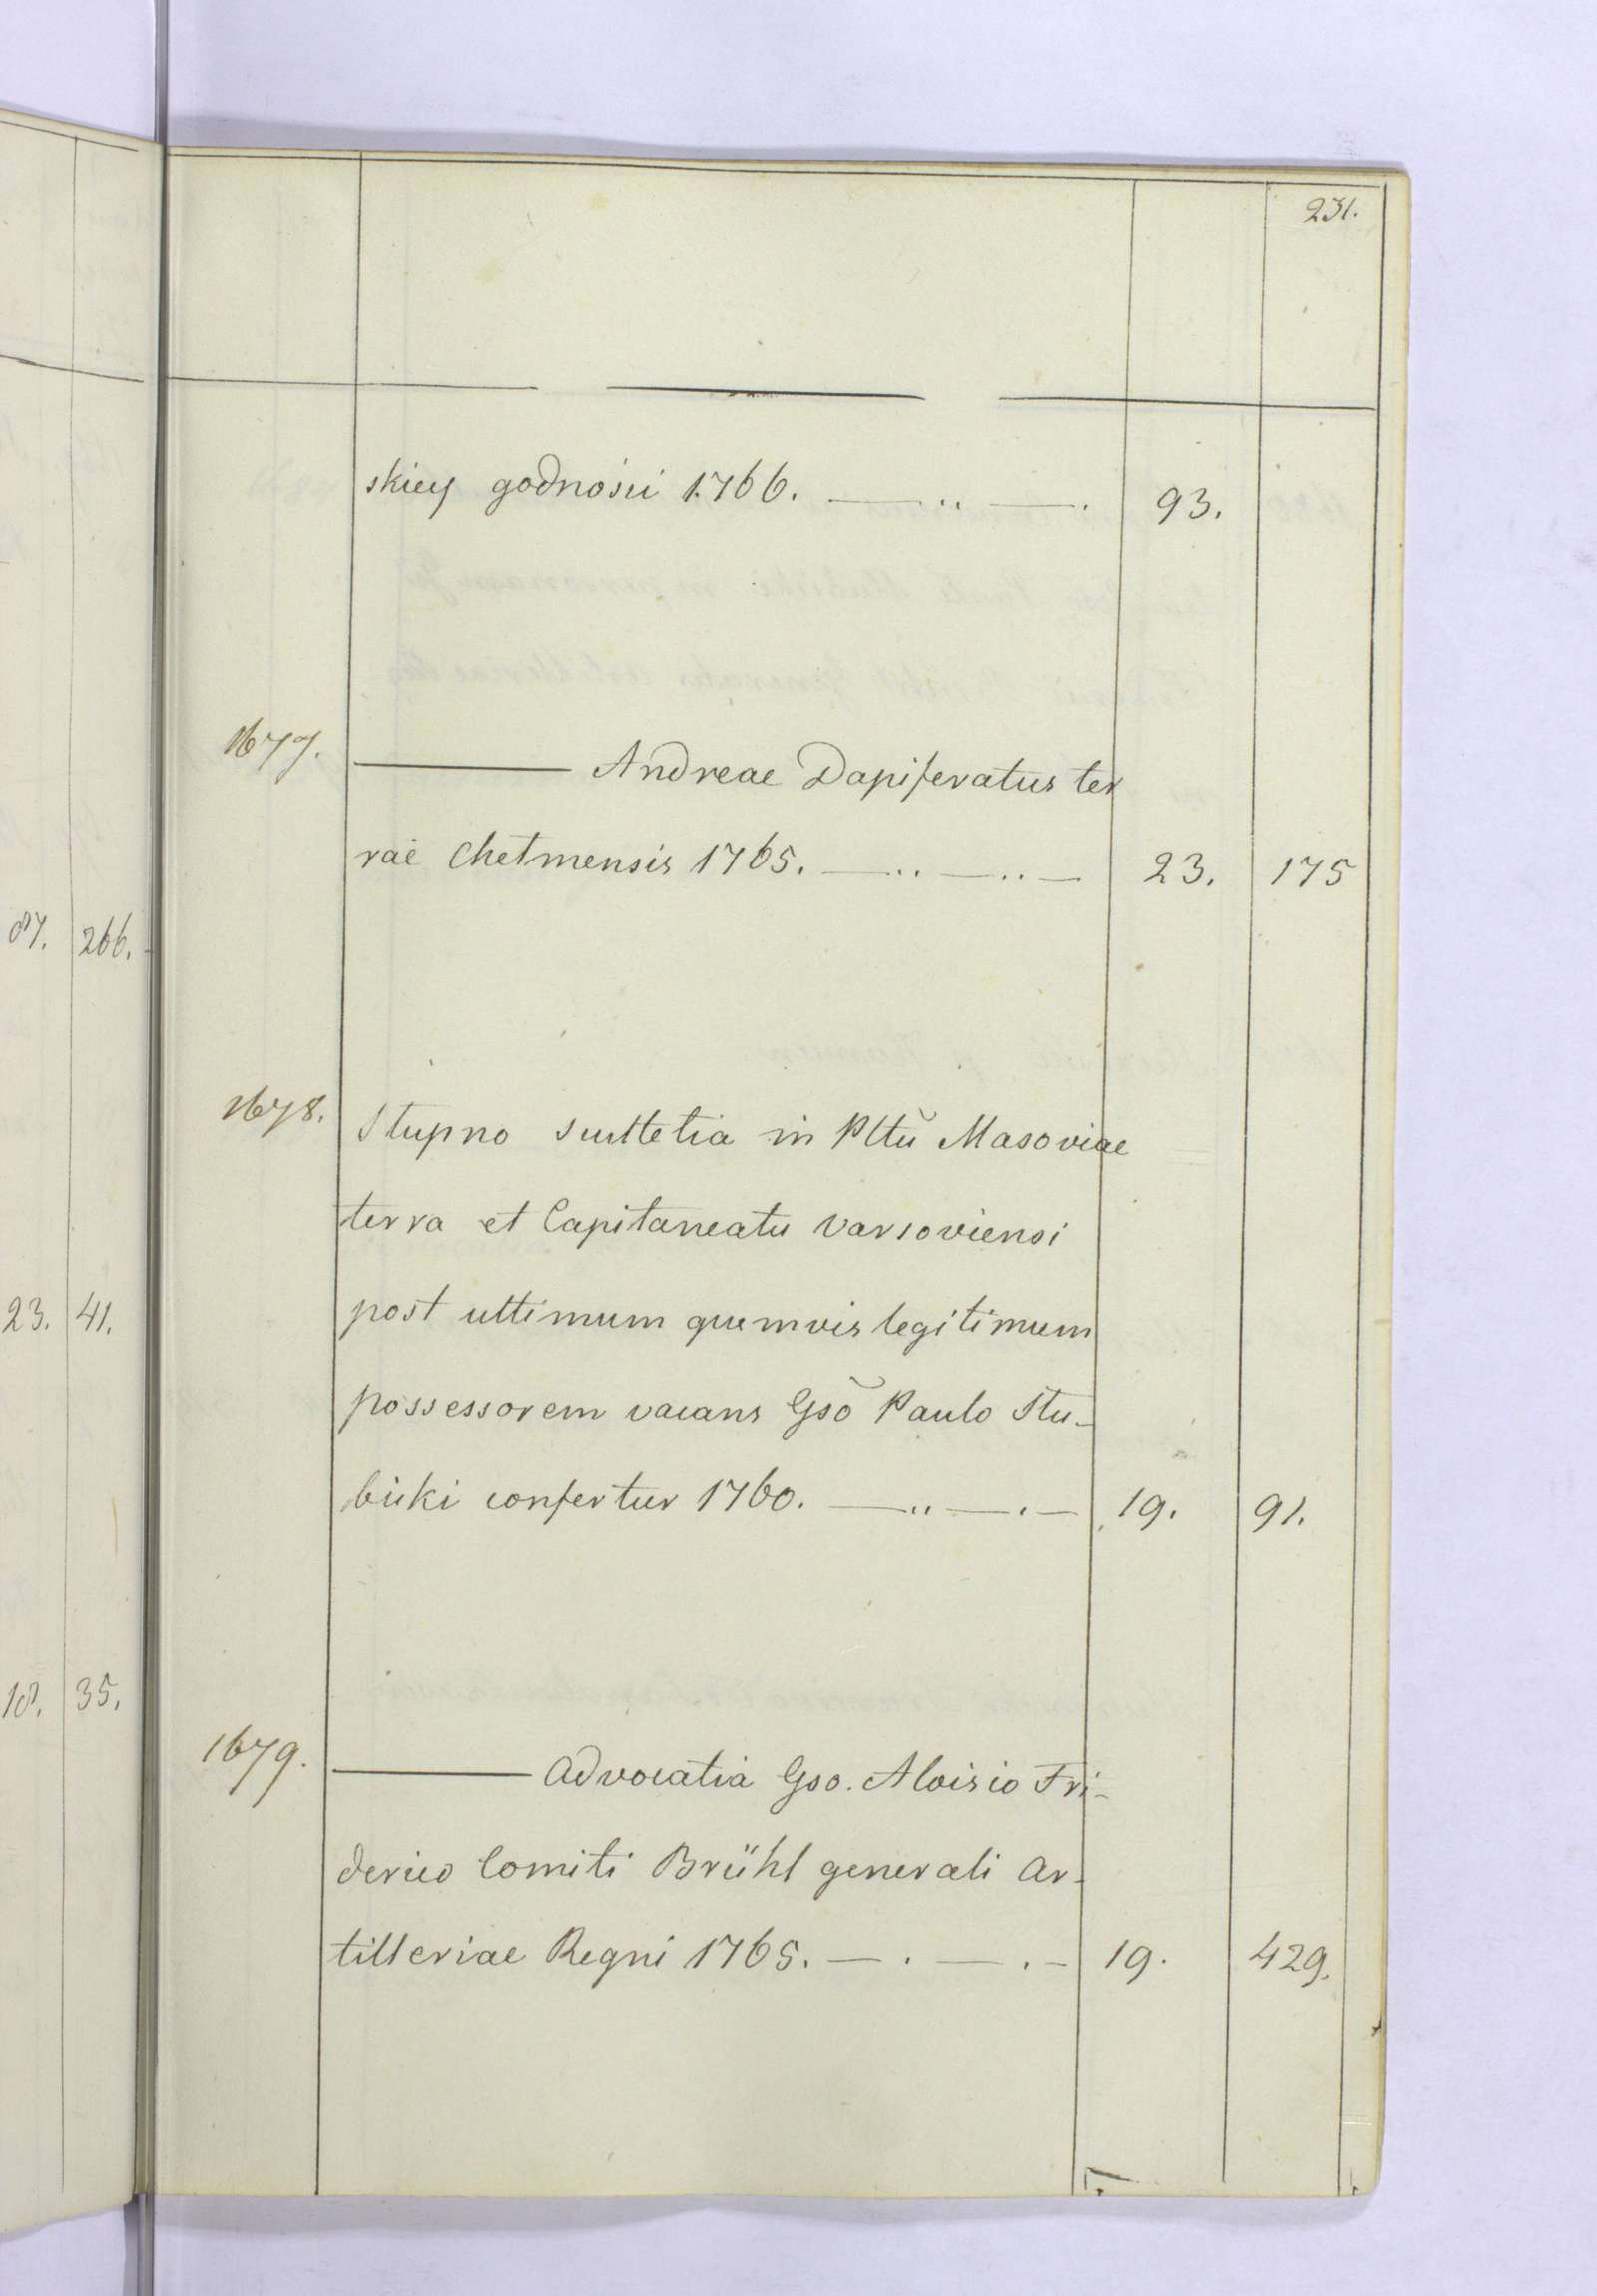 231.
skiey godności 1766. —..—. 93.
1677. ——— Andreae Dapiferatus ter
rae Chełmensis 1765. —..—..— 23. 175
1678. Słupno scultetia in Plttũ Masoviae
terra et Capitaneatu Varsoviensi
post ultimum quemvis legitimum
possessorem vacans Gsõ Paulo Stu-
bicki confertur 1760. —..—.— 19. 91.
1679. ——— Advocatia Gso. Aloisio Fri-
derico Comiti Brühl generali Ar-
tilleriae Regni 1765. —.—.— 19. 429.
87. 266.
23. 41.
18. 35.